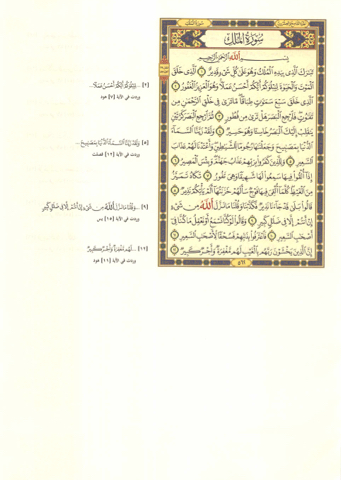 سُورَةُ المُلْكِ
بِسْمِ اللَّهِ الرَّحْمَٰنِ الرَّحِيمِ
تَبَٰرَكَ الَّذِي بِيَدِهِ الْمُلْكُ وَهُوَ عَلَىٰ كُلِّ شَيْءٍ قَدِيرٌ ١ الَّذِي خَلَقَ
الْمَوْتَ وَالْحَيَوٰةَ لِيَبْلُوَكُمْ أَيُّكُمْ أَحْسَنُ عَمَلًا وَهُوَ الْعَزِيزُ الْغَفُورُ ٢
الَّذِي خَلَقَ سَبْعَ سَمَٰوَٰتٍ طِبَاقًا مَّا تَرَىٰ فِي خَلْقِ الرَّحْمَٰنِ مِن
تَفَٰوُتٍ فَارْجِعِ الْبَصَرَ هَلْ تَرَىٰ مِن فُطُورٍ ٣ ثُمَّ ارْجِعِ الْبَصَرَ كَرَّتَيْنِ
يَنقَلِبْ إِلَيْكَ الْبَصَرُ خَاسِئًا وَهُوَ حَسِيرٌ ٤ وَلَقَدْ زَيَّنَّا السَّمَآءَ
الدُّنْيَا بِمَصَٰبِيحَ وَجَعَلْنَٰهَا رُجُومًا لِّلشَّيَٰطِينِ وَأَعْتَدْنَا لَهُمْ عَذَابَ
السَّعِيرِ ٥ وَلِلَّذِينَ كَفَرُوا بِرَبِّهِمْ عَذَابُ جَهَنَّمَ وَبِئْسَ الْمَصِيرُ ٦
إِذَآ أُلْقُوا فِيهَا سَمِعُوا لَهَا شَهِيقًا وَهِيَ تَفُورُ ٧ تَكَادُ تَمَيَّزُ
مِنَ الْغَيْظِ كُلَّمَآ أُلْقِيَ فِيهَا فَوْجٌ سَأَلَهُمْ خَزَنَتُهَآ أَلَمْ يَأْتِكُمْ نَذِيرٌ ٨
قَالُوا بَلَىٰ قَدْ جَآءَنَا نَذِيرٌ فَكَذَّبْنَا وَقُلْنَا مَا نَزَّلَ اللَّهُ مِن شَيْءٍ
إِنْ أَنتُمْ إِلَّا فِي ضَلَٰلٍ كَبِيرٍ ٩ وَقَالُوا لَوْ كُنَّا نَسْمَعُ أَوْ نَعْقِلُ مَا كُنَّا فِي
أَصْحَٰبِ السَّعِيرِ ١٠ فَاعْتَرَفُوا بِذَنۢبِهِمْ فَسُحْقًا لِّأَصْحَٰبِ السَّعِيرِ ١١
إِنَّ الَّذِينَ يَخْشَوْنَ رَبَّهُم بِالْغَيْبِ لَهُم مَّغْفِرَةٌ وَأَجْرٌ كَبِيرٌ ١٢
٥٦٢
[٢] ... لِيَبْلُوَكُمْ أَيُّكُمْ أَحْسَنُ عَمَلًا...
وردت في الآية [٧] هود
[٥] وَلَقَدْ زَيَّنَّا السَّمَآءَ الدُّنْيَا بِمَصَٰبِيحَ...
وردت في الآية [١٢] فصلت
[٩] ...وَقُلْنَا مَا نَزَّلَ اللَّهُ مِن شَيْءٍ إِنْ أَنتُمْ إِلَّا فِي ضَلَٰلٍ كَبِيرٍ
وردت في الآية [١٥] يس
[١٢] ...لَهُم مَّغْفِرَةٌ وَأَجْرٌ كَبِيرٌ
وردت في الآية [١١] هود